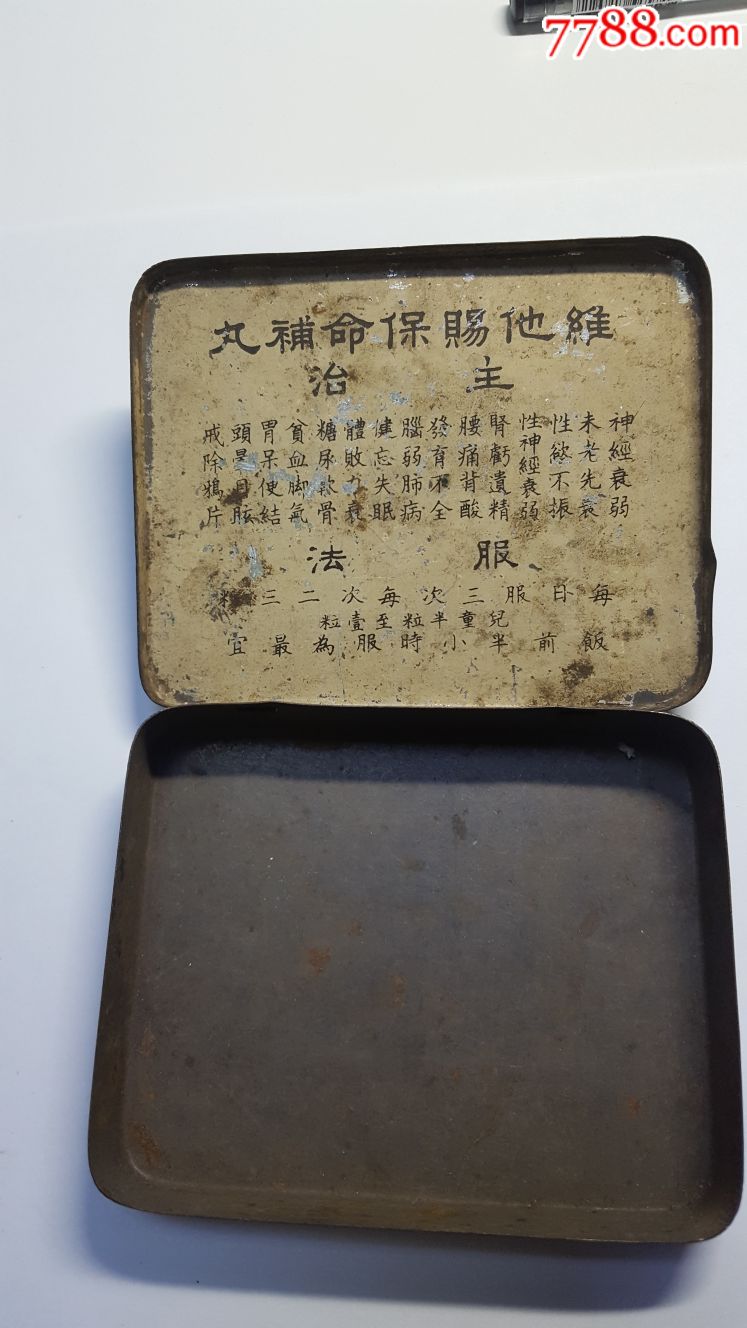 7788.com
維他賜保命補丸
主治
神經衰弱
未老先衰
性慾不振
性神經衰弱
腎虧遺精
腰痛背酸
發育不全
腦弱肺病
健忘失眠
體敗力衰
糖尿軟骨
貧血脚氣
胃呆便結
頭暈目眩
戒除鴉片
服法
每日服三次每次二三粒
兒童半粒至壹粒
飯前半小時服為最宜